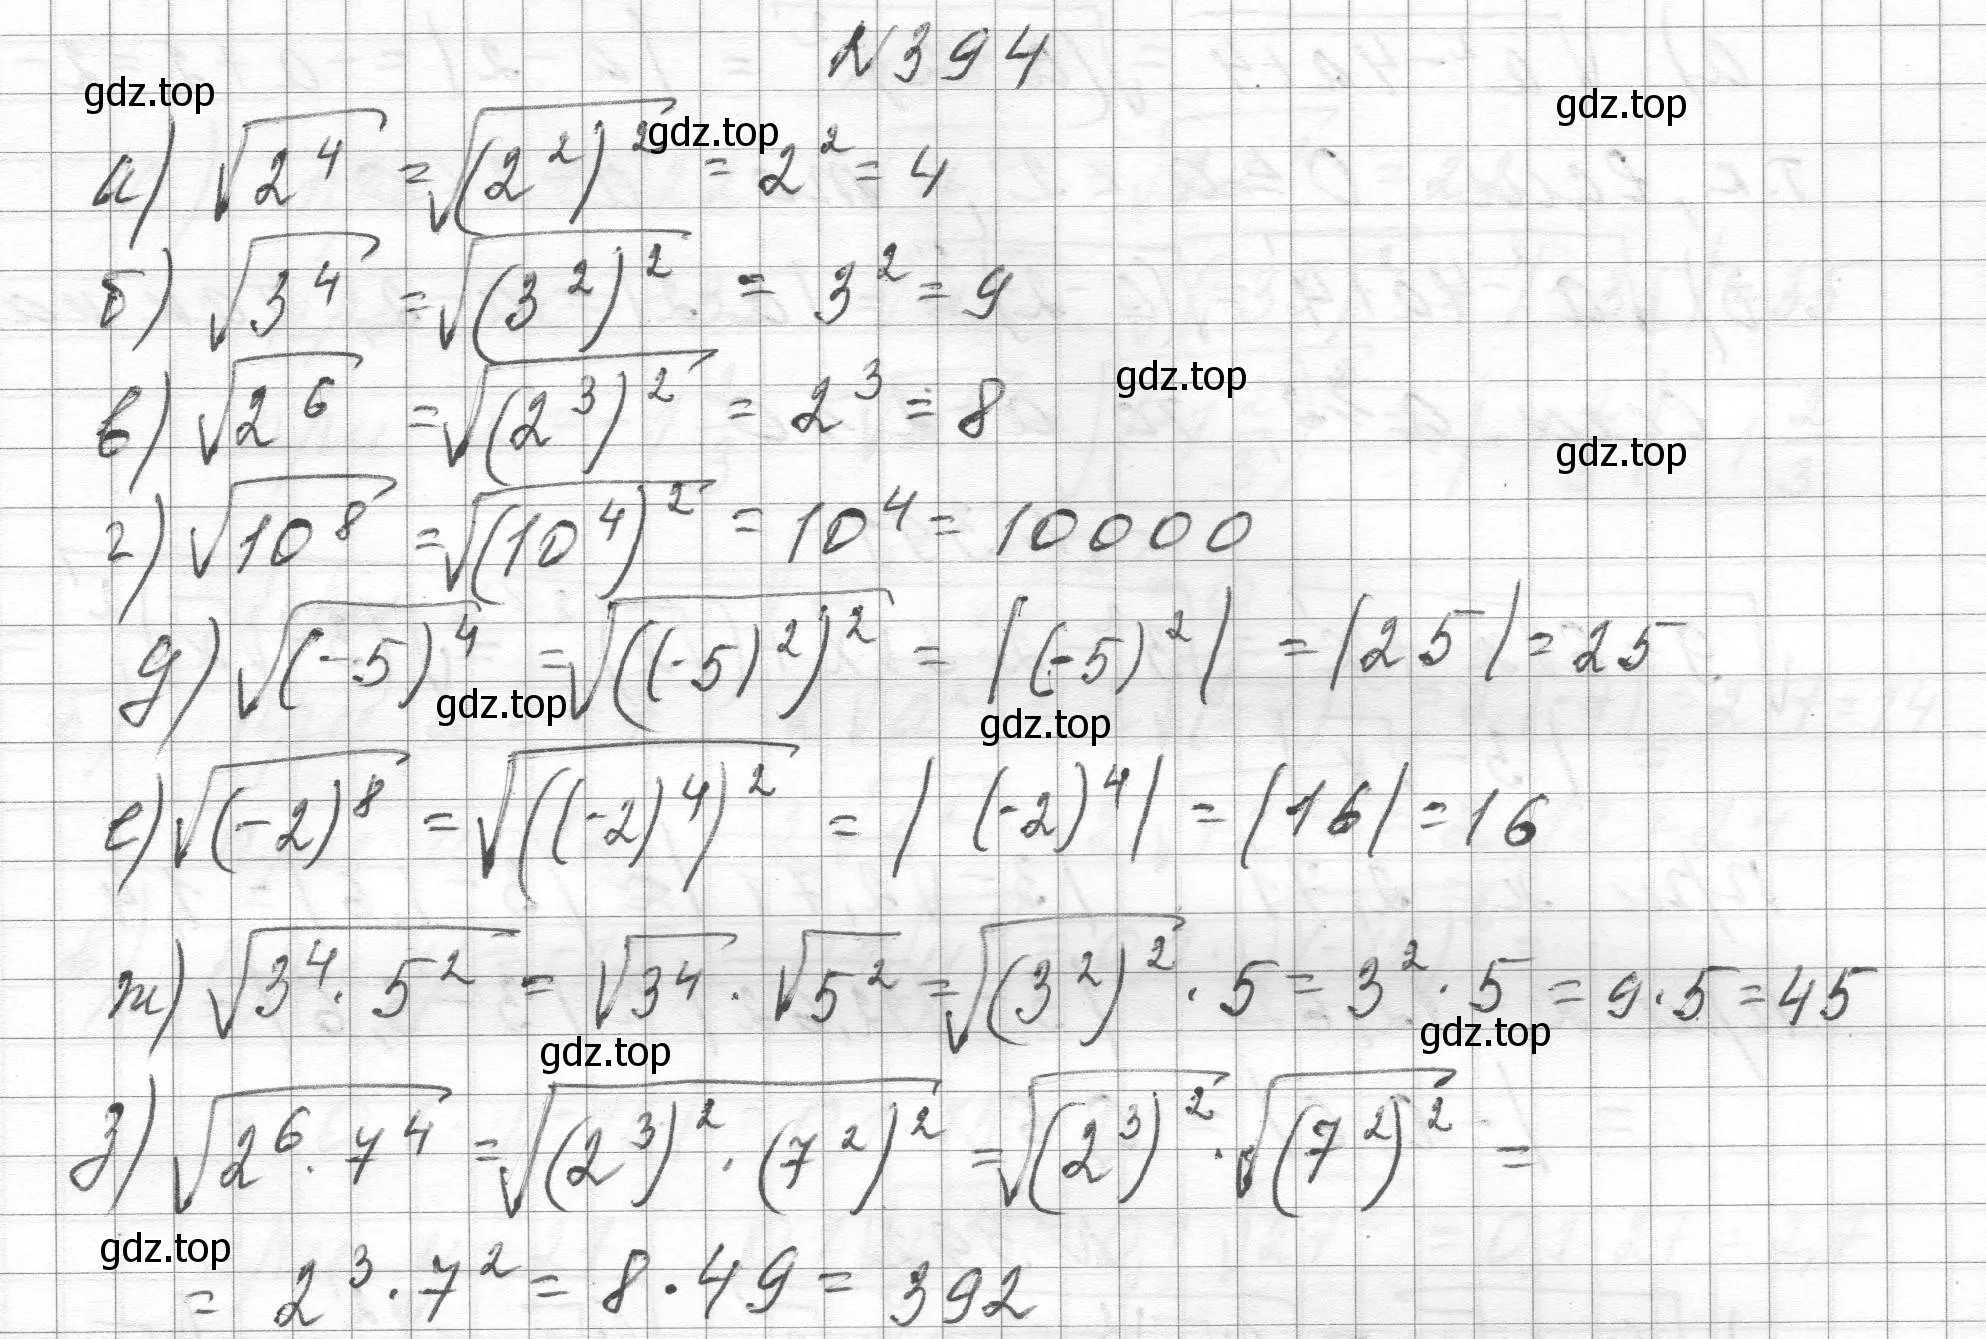 N 394
gdz.top
gdz.top
gdz.top
а) √(2⁴) = √((2²)²) = 2² = 4
б) √(3⁴) = √((3²)²) = 3² = 9
в) √(2⁶) = √((2³)²) = 2³ = 8
gdz.top
gdz.top
г) √(10⁸) = √((10⁴)²) = 10⁴ = 10000
д) √((-5)⁴) = √(((-5)²)²) = |(-5)²| = |25| = 25
gdz.top
gdz.top
е) √((-2)⁸) = √(((-2)⁴)²) = |(-2)⁴| = |16| = 16
ж) √(3⁴·5²) = √(3⁴) · √(5²) = √((3²)²) · 5 = 3² · 5 = 9·5 = 45
gdz.top
gdz.top
з) √(2⁶·7⁴) = √((2³)²·(7²)²) = √((2³)²) · √((7²)²) =
gdz.top
= 2³·7² = 8·49 = 392